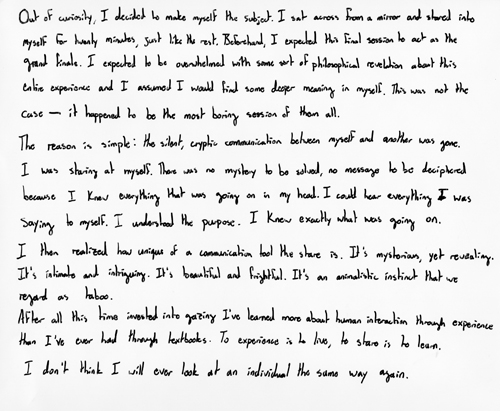 Out of curiosity, I decided to make myself the subject. I sat across from a mirror and stared into
myself for twenty minutes, just like the rest. Beforehand, I expected this final session to act as the
grand finale. I expected to be overwhelmed with some sort of philosophical revelation about this
entire experience and I assumed I would find some deeper meaning in myself. This was not the
case — it happened to be the most boring session of them all.
The reason is simple: the silent, cryptic communication between myself and another was gone.
I was staring at myself. There was no mystery to be solved, no message to be deciphered
because I knew everything that was going on in my head. I could hear everything I was
saying to myself. I understood the purpose. I knew exactly what was going on.
I then realized how unique of a communication tool the stare is. It's mysterious, yet revealing.
It's intimate and intriguing. It's beautiful and frightful. It's an animalistic instinct that we
regard as taboo.
After all this time invested into gazing I've learned more about human interaction through experience
than I've ever had through textbooks. To experience is to live, to stare is to learn.
I don't think I will ever look at an individual the same way again.